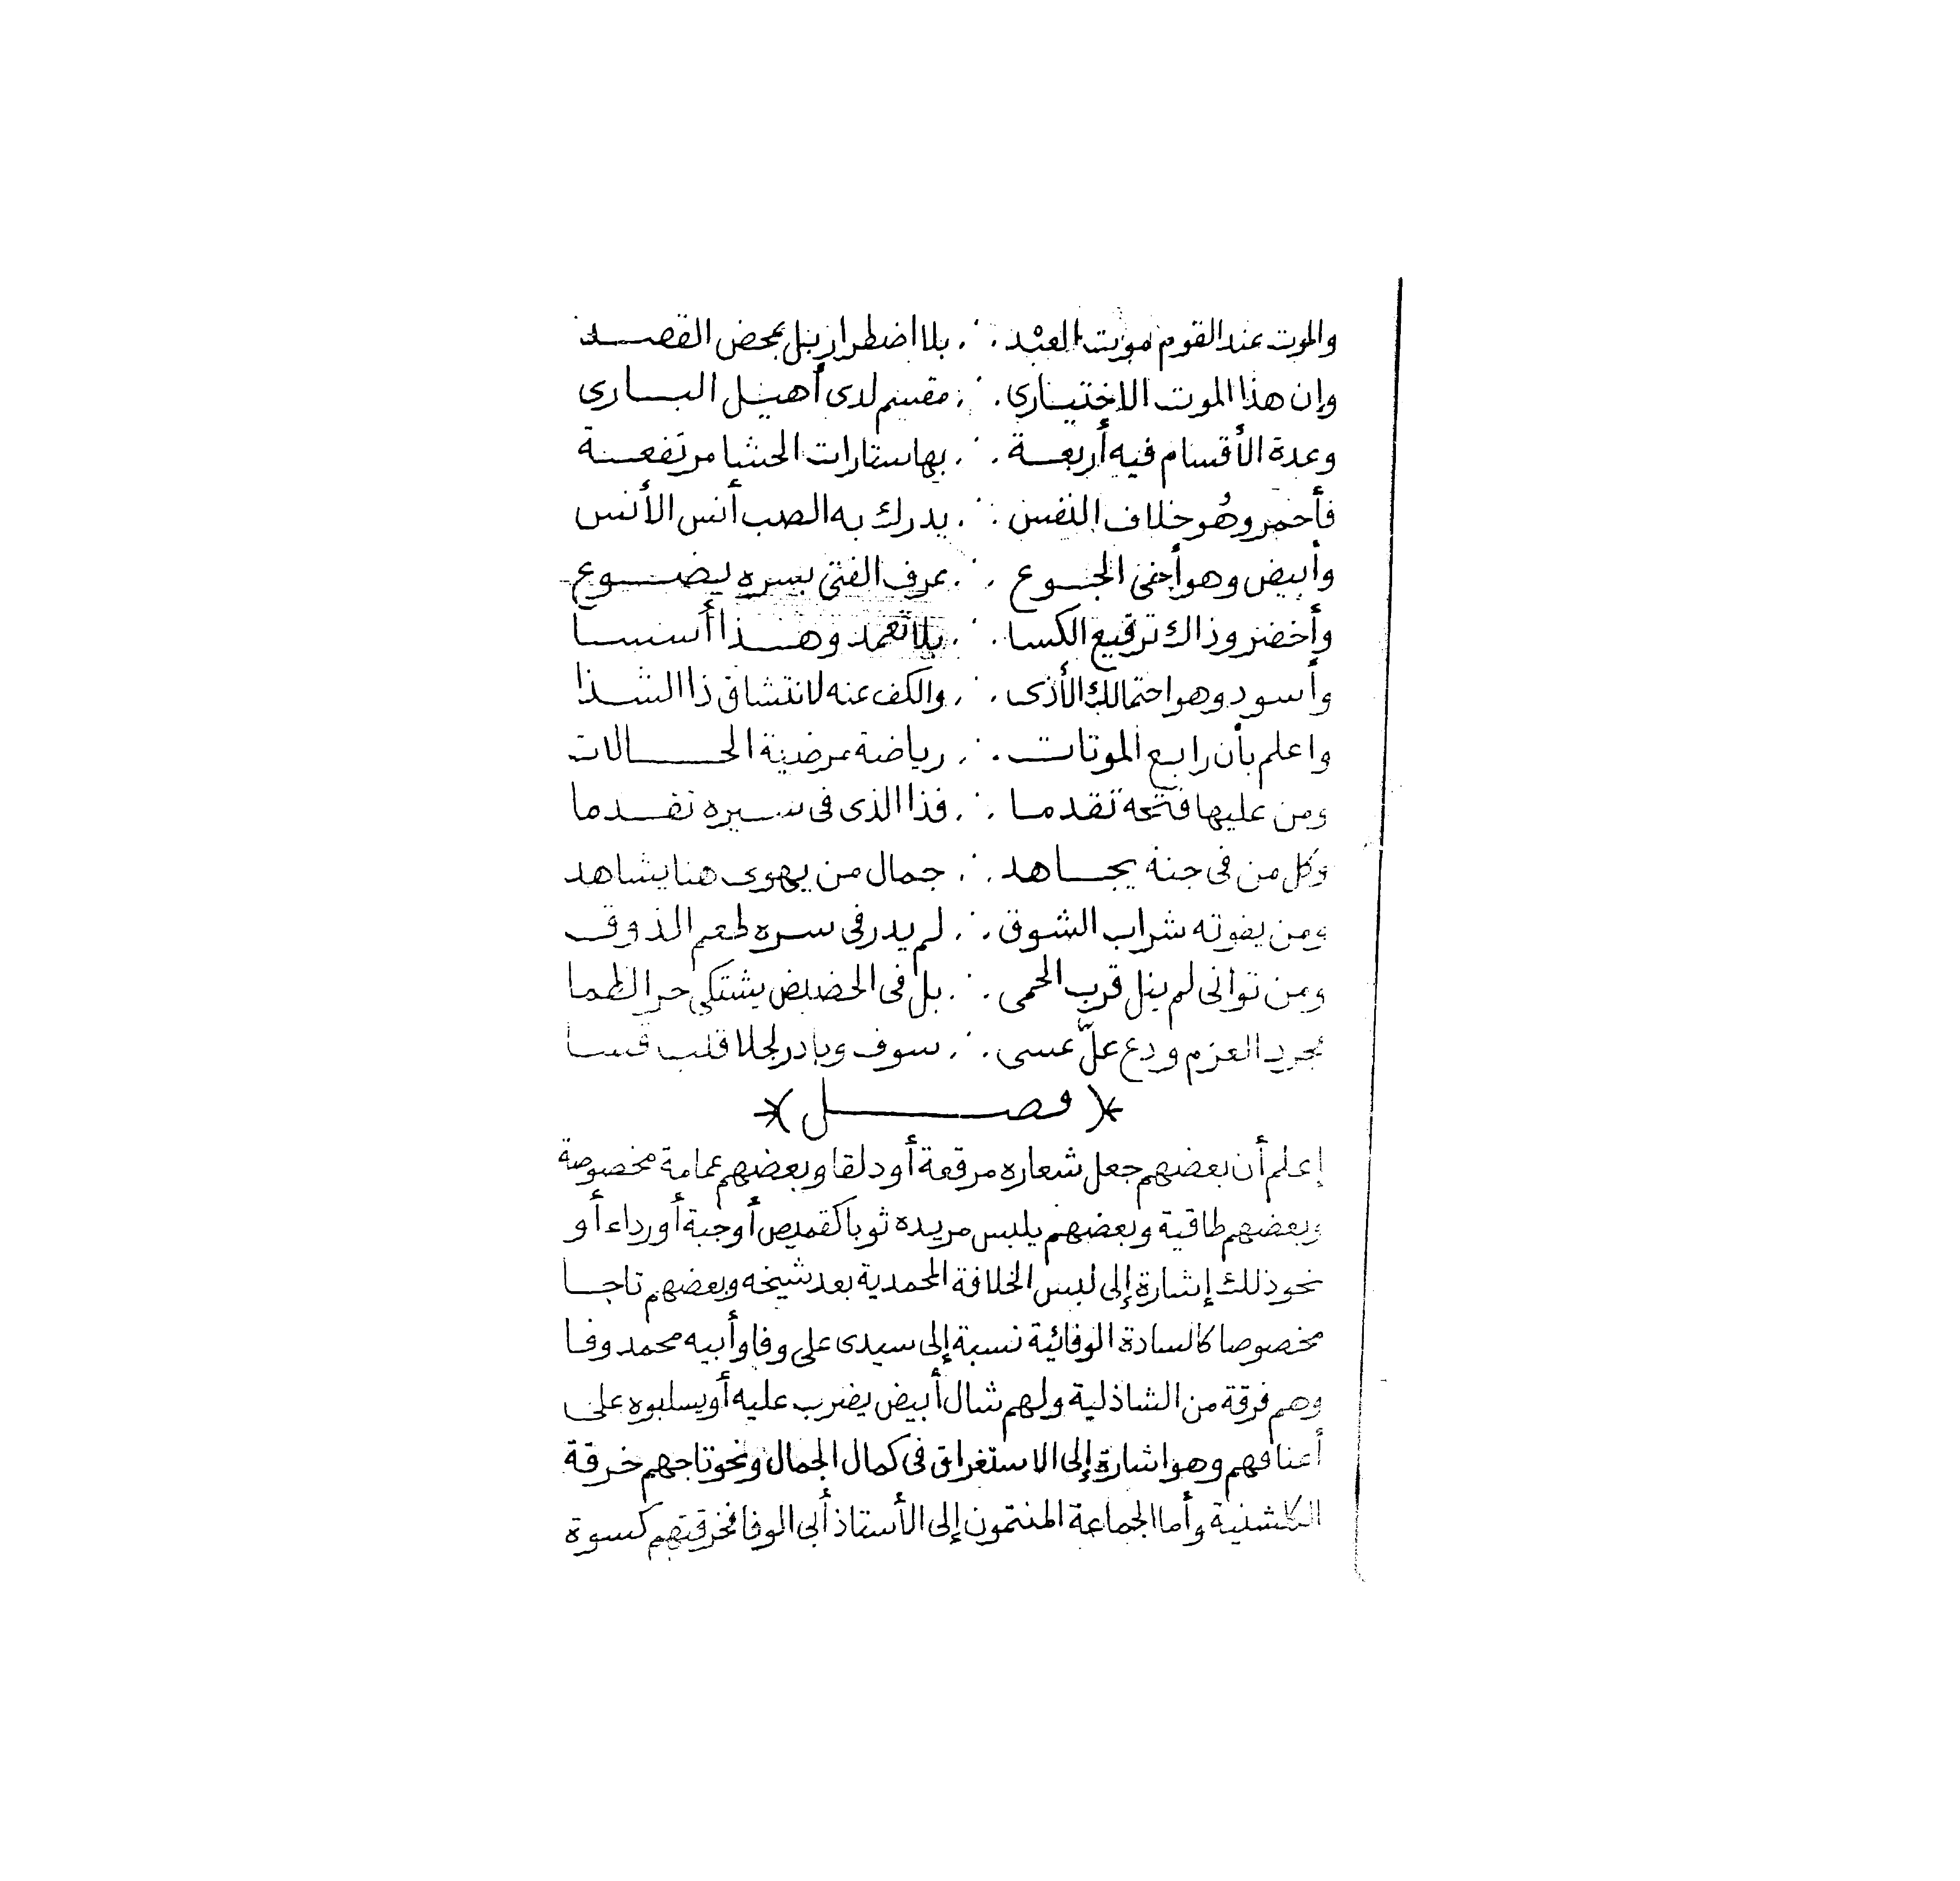 والموت عند القوم موت العبد ∴ بلا اضطرار بل بمحض القصد
وإن هذا الموت الاختياري ∴ مقسم لدى أهيل البارى
وعدة الأقسام فيه أربعة ∴ بها ستارات الحشا مرتفعة
فأحمر وهُو خلاف النفس ∴ يدرك به الصب أنس الأنس
وأبيض وهو أخى الجوع ∴ عرف الفتى بسره يضوع
وأخضر وذاك ترقيع الكسا ∴ بلا تعمد وهذا أسسا
وأسود وهو احتمالك الأذى ∴ والكف عنه لانتشاق ذا الشذا
واعلم بأن رابع الموتات ∴ رياضة مرضية الحالات
ومن عليها فتحه تقدما ∴ فذا الذى فى سيره تقدما
وكل من فى جنة يجاهد ∴ جمال من يهوى هنا يشاهد
ومن يفوته شراب الشوق ∴ لم يدر فى سره طعم الذوق
ومن توانى لم ينل قرب الحمى ∴ بل فى الحضيض يشتكى حر الظما
فجرد العزم ودع علّ عسى ∴ سوف وبادر لجلا قلب قسا
*( فصل )*
إعلم أن بعضهم جعل شعاره مرقعة أو دلقا وبعضهم عمامة مخصوصة
وبعضهم طاقية وبعضهم يلبس مريده ثوبا كقميص أوجبة أورداء أو
نحو ذلك إشارة إلى لبس الخلافة المحمدية بعد شيخه وبعضهم تاجا
مخصوصا كالسادة الوفائية نسبة إلى سيدى على وفا وأبيه محمد وفا
وهم فرقة من الشاذلية ولهم شال أبيض يضرب عليه أو يسلبوه على
أعناقهم وهو اشارة إلى الاستغراق فى كمال الجمال ونحو تاجهم خرقة
الكلشنية وأما الجماعة المنتمون إلى الأستاذ أبى الوفا فخرقتهم كسوة